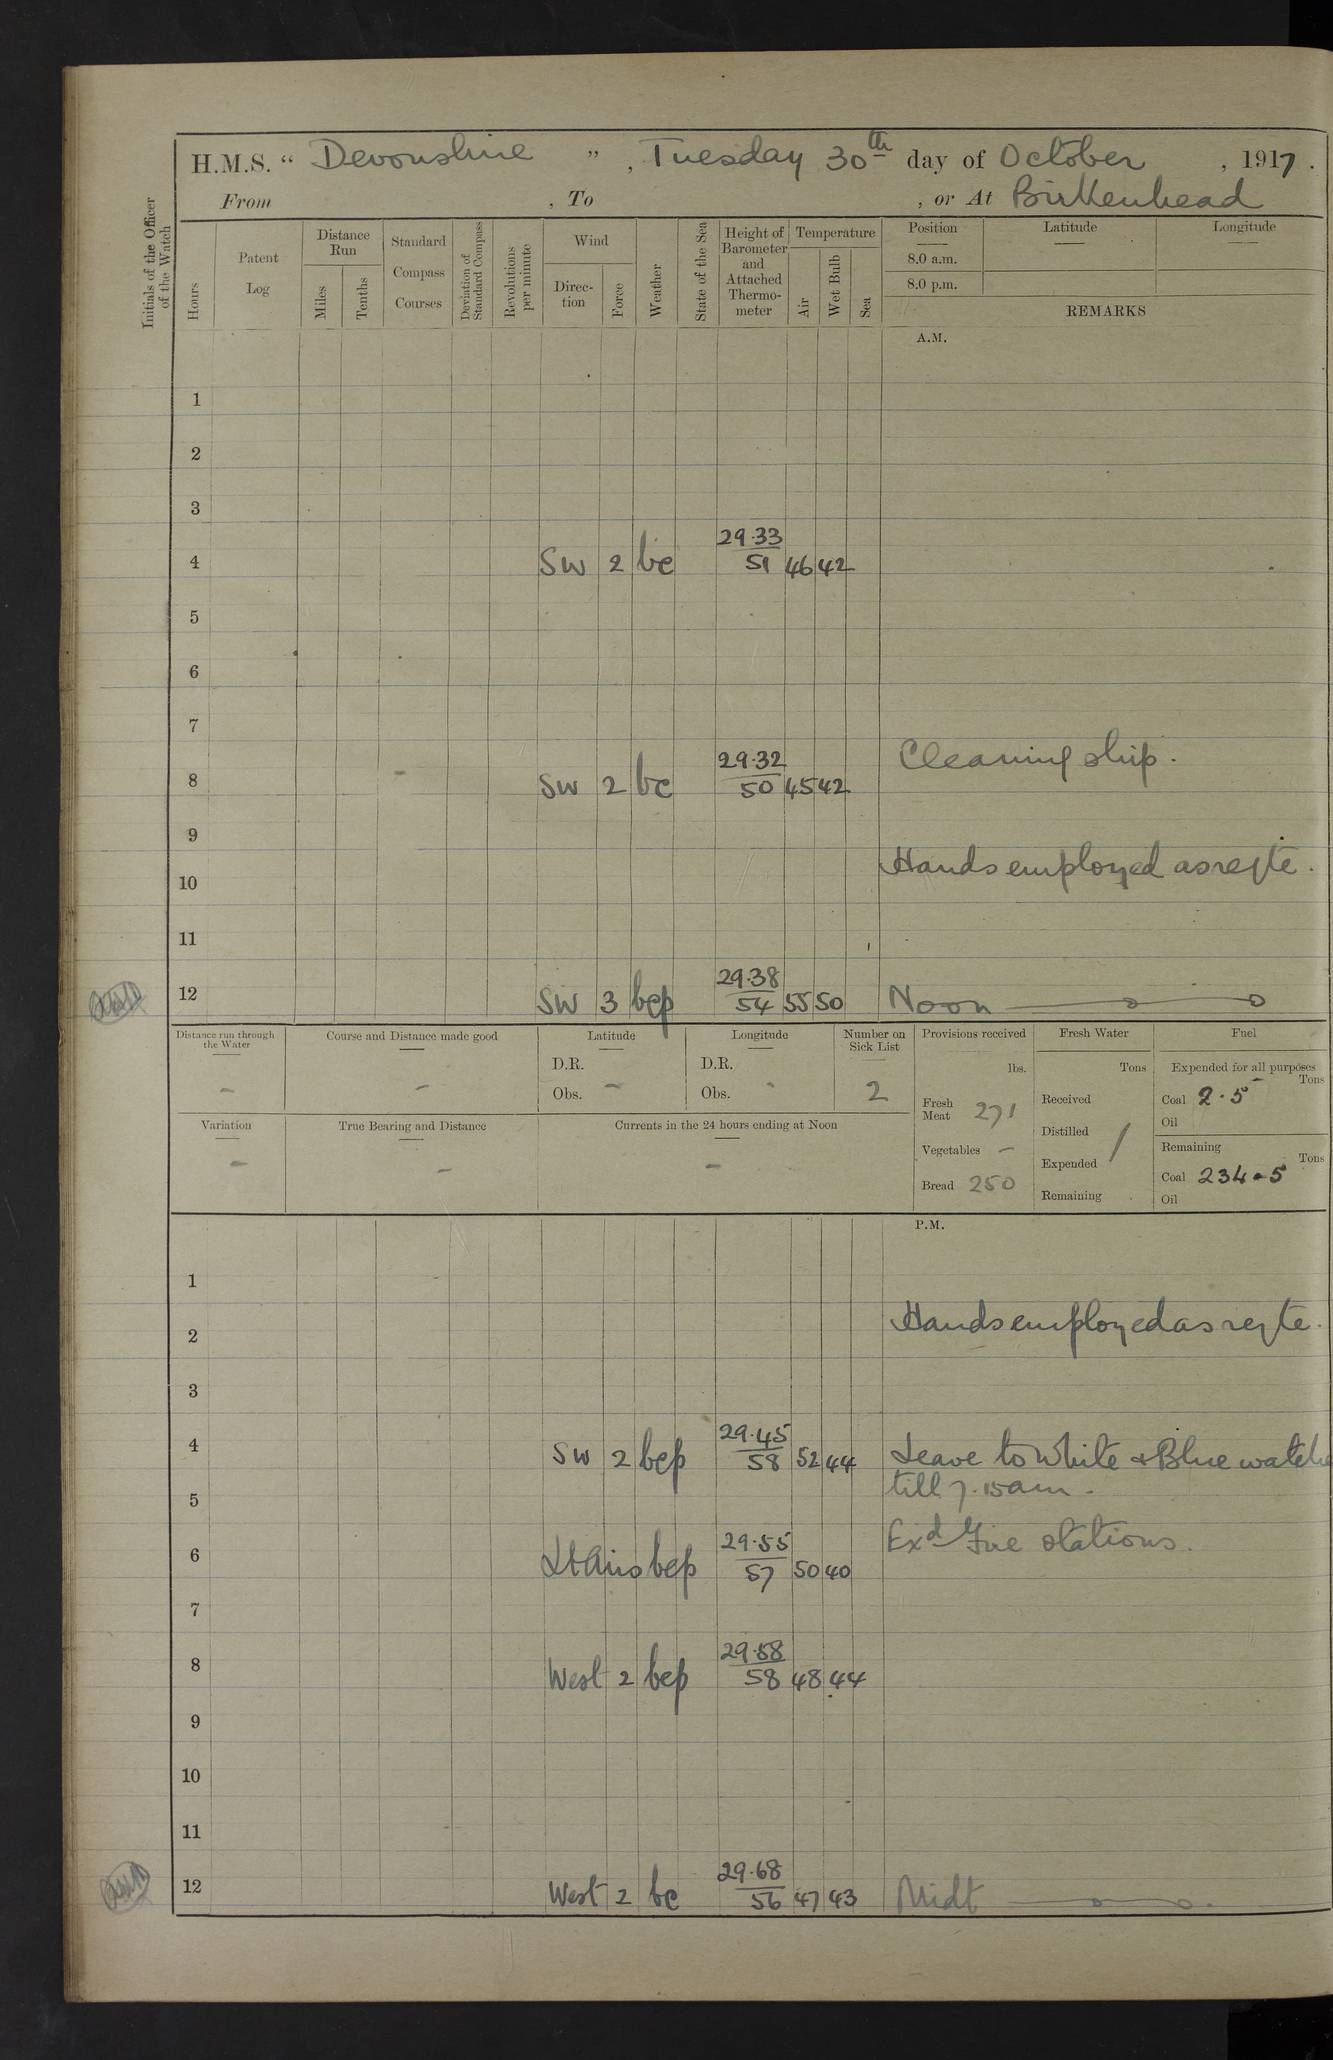 H.M.S. " Devonshire ", Tuesday 30th day of October, 1917.
From , To , or At Birkenhead
Initials of the Officer of the Watch
Hours
Patent Log
Distance Run
Miles
Tenths
Standard Compass Courses
Deviation of Standard Compass
Revolutions per minute
Wind
Direc-tion
Force
Weather
State of the Sea
Height of Barometer and Attached Thermo-meter
Temperature
Air
Wet Bulb
Sea
Position
8.0 a.m.
8.0 p.m.
Latitude
Longitude
REMARKS
A.M.
1
2
3
4 SW 2 bc 29.33 51 46 42
5
6
7
Cleaning ship.
8 SW 2 bc 29.32 50 45 42
9
Hands employed as reqte.
10
11
12 SW 3 bcp 29.38 54 55 50 Noon
Distance run through the Water
-
Course and Distance made good
-
Latitude
D.R.
Obs. -
Longitude
D.R.
Obs. -
Number on Sick List
2
Provisions received
lbs.
Fresh Meat 271
Vegetables -
Bread 250
Fresh Water
Tons
Received
Distilled
Expended /
Remaining
Fuel
Expended for all purposes
Tons
Coal 2.5
Oil
Remaining
Tons
Coal 234.5
Oil
Variation
-
True Bearing and Distance
-
Currents in the 24 hours ending at Noon
-
P.M.
1
Hands employed as reqte.
2
3
4 SW 2 bcp 29.45 58 52 44 Leave to White & Blue watche
5 till 7.15am.
Exd Fire stations.
6 Lt Airs bcp 29.55 57 50 40
7
8 West 2 bcp 29.58 58 48 44
9
10
11
12 West 2 bc 29.68 56 47 43 Midt